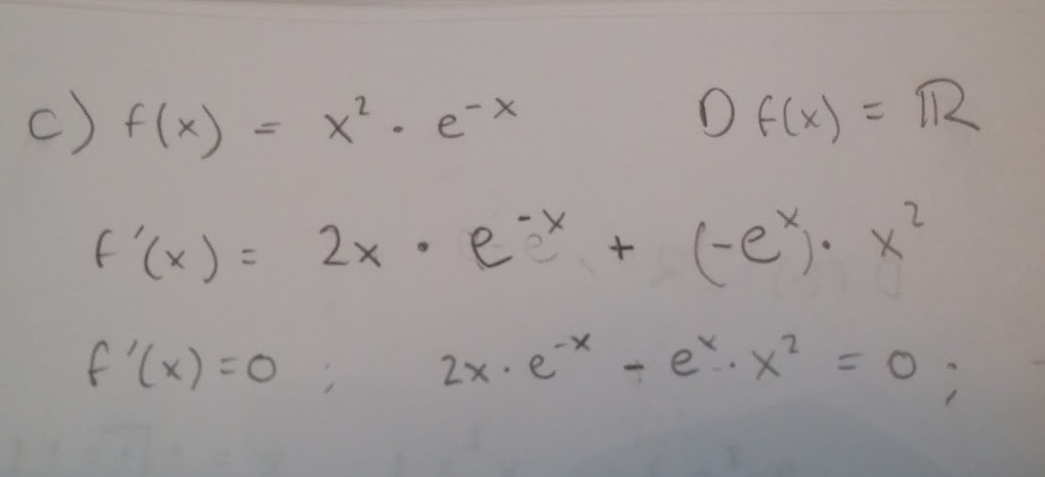 c) f(x) = x² · e⁻ˣ D f(x) = ℝ
f'(x) = 2x · e⁻ˣ + (-eˣ) · x²
f'(x) = 0 ; 2x · e⁻ˣ - eˣ · x² = 0 ;